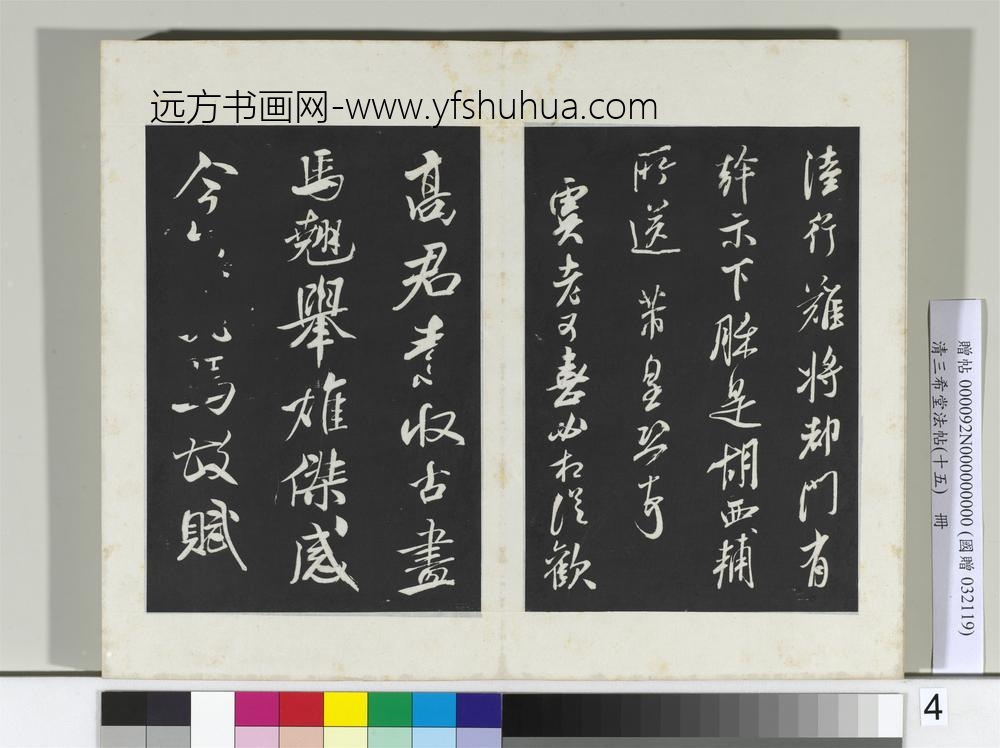 远方书画网-www.yfshuhua.com
陸行難將却門有
幹示下
是胡西輔
所送 芾皇恐奇
老可喜必相從歡
高君素收古畫
馬翹舉雄傑感
今
馬故賦
贈帖 000092N000000000 (國贈 032119)
清三希堂法帖(十五) 冊
4